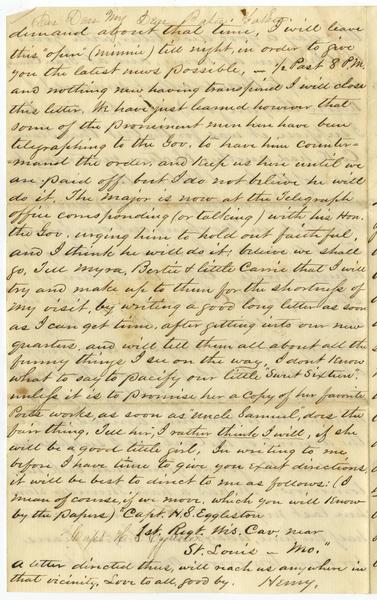 demand about that time, I will leave
this "open" (minnie) till night, in order to give
you the latest news possible, — ½ Past 8 P.M.
and nothing new having transpired I will close
this letter. We have just learned however that
some of the prominent men here have been
telegraphing to the Gov. to have him counter-
mand the order, and keep us here until we
are paid off. but I do not believe he will
do it, The Major is now at the Telegraph
office corresponding (or talking) with his Hon.
the Gov. urging him to hold out faithful,
and I think he will do it; believe we shall
go, Tell Myra, Bertie & little Carrie that I will
try and make up to them for the shortness of
my visit, by writing a good long letter as soon
as I can get time, after getting into our new
quarters, and will tell them all about all the
funny things I see on the way, I dont know
what to say to pacify our little "Sweet Sixteen"
unless it is to promise her a copy of her favorite
Poets works, as soon as "Uncle Samuel", does the
fair thing, Tell her, I rather think I will, if she
will be a good little girl, In writing to me,
before I have time to give you exact directions,
it will be best to direct me as follows: (I
mean of course, if we move. which you will know
by the papers) "Capt. H.S. Eggleston
1st. Regt. Wis. Cav. near
St. Louis — Mo."
A letter directed thus, will reach us anywhere in
that vicinity, Love to all, good by. Henry.